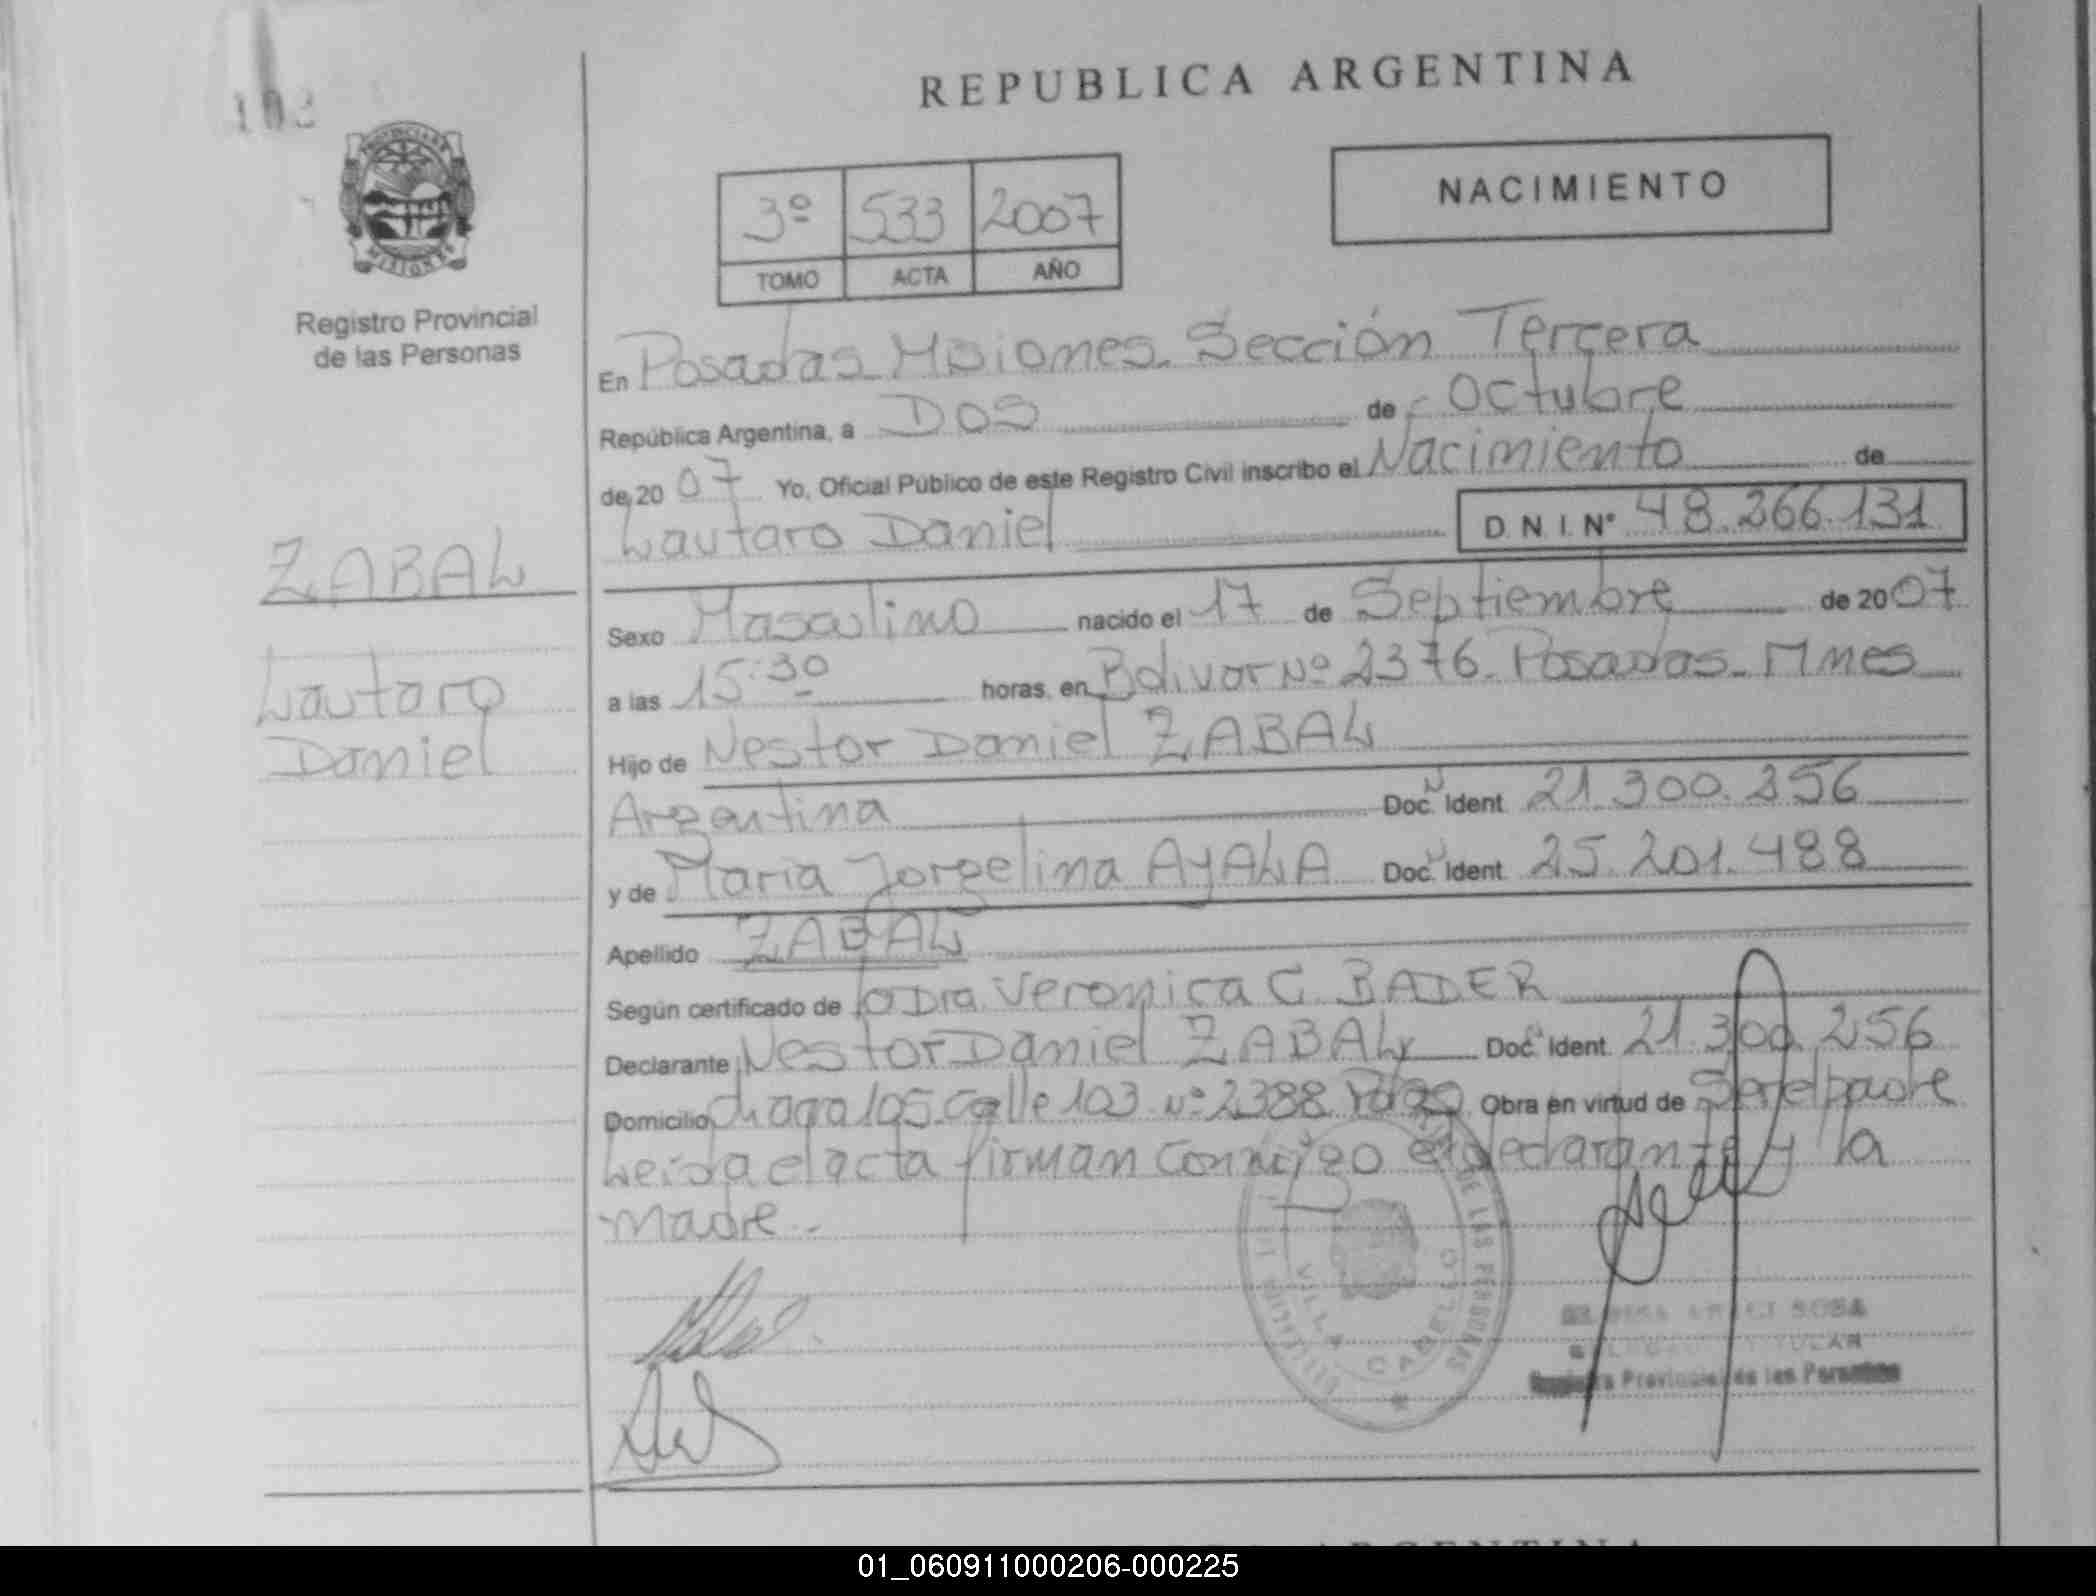 REPUBLICA ARGENTINA
PROVINCIA DE
MISIONES
Registro Provincial
de las Personas
3º 533 2007
TOMO ACTA AÑO
NACIMIENTO
En Posadas Misiones. Sección Tercera
República Argentina, a DOS de Octubre
de 20 07 Yo, Oficial Público de este Registro Civil inscribo el Nacimiento de
Lautaro Daniel D. N. I. Nº 48.266.131
ZABAL
Lautaro
Daniel
Sexo Masculino nacido el 17 de Septiembre de 20 07
a las 15:30 horas, en Bolivar Nº 2376. Posadas. Mnes
Hijo de Nestor Daniel ZABAL
Argentina Doc. Ident. 21.300.256
y de Maria Jorgelina AYALA Doc. Ident. 25.201.488
Apellido ZABAL
Según certificado de Dra. Veronica C. BADER
Declarante Nestor Daniel ZABAL Doc. Ident. 21.300.256
Domicilio chacra 105. Calle 103 Nº 2388 Obra en virtud de Ser el padre
Leida el acta firman conmigo el declarante y la
madre.-
DE LAS PERSONAS
VILLA CABELLO
SOSA
TITULAR
Registro Provincial de las Personas
ARGENTINA
01_060911000206-000225